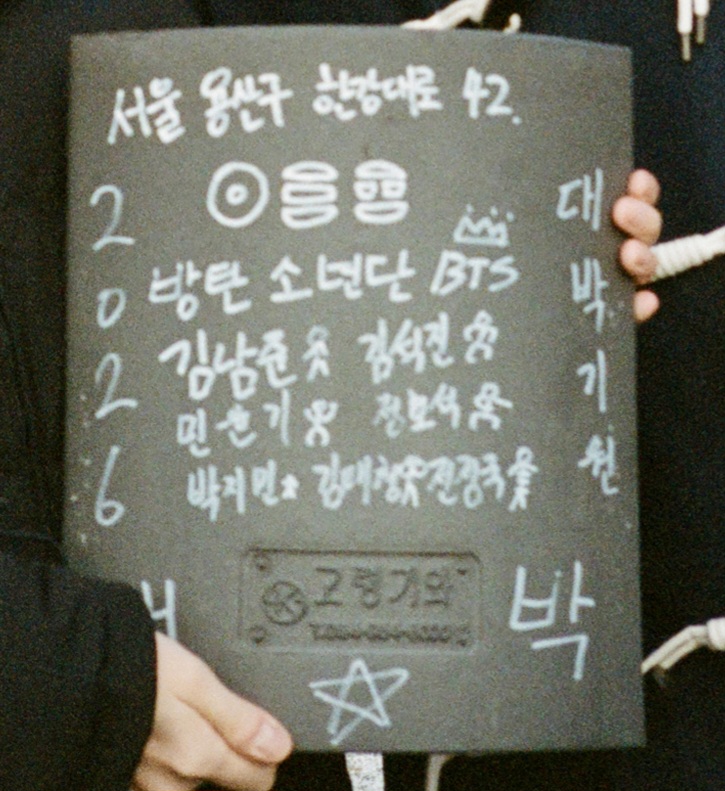 서울 용산구 한강대로 42.
방탄소년단 BTS
김남준 김석진
민윤기 정호석
박지민 김태형 전정국
2026
대박기원
고령기와
박